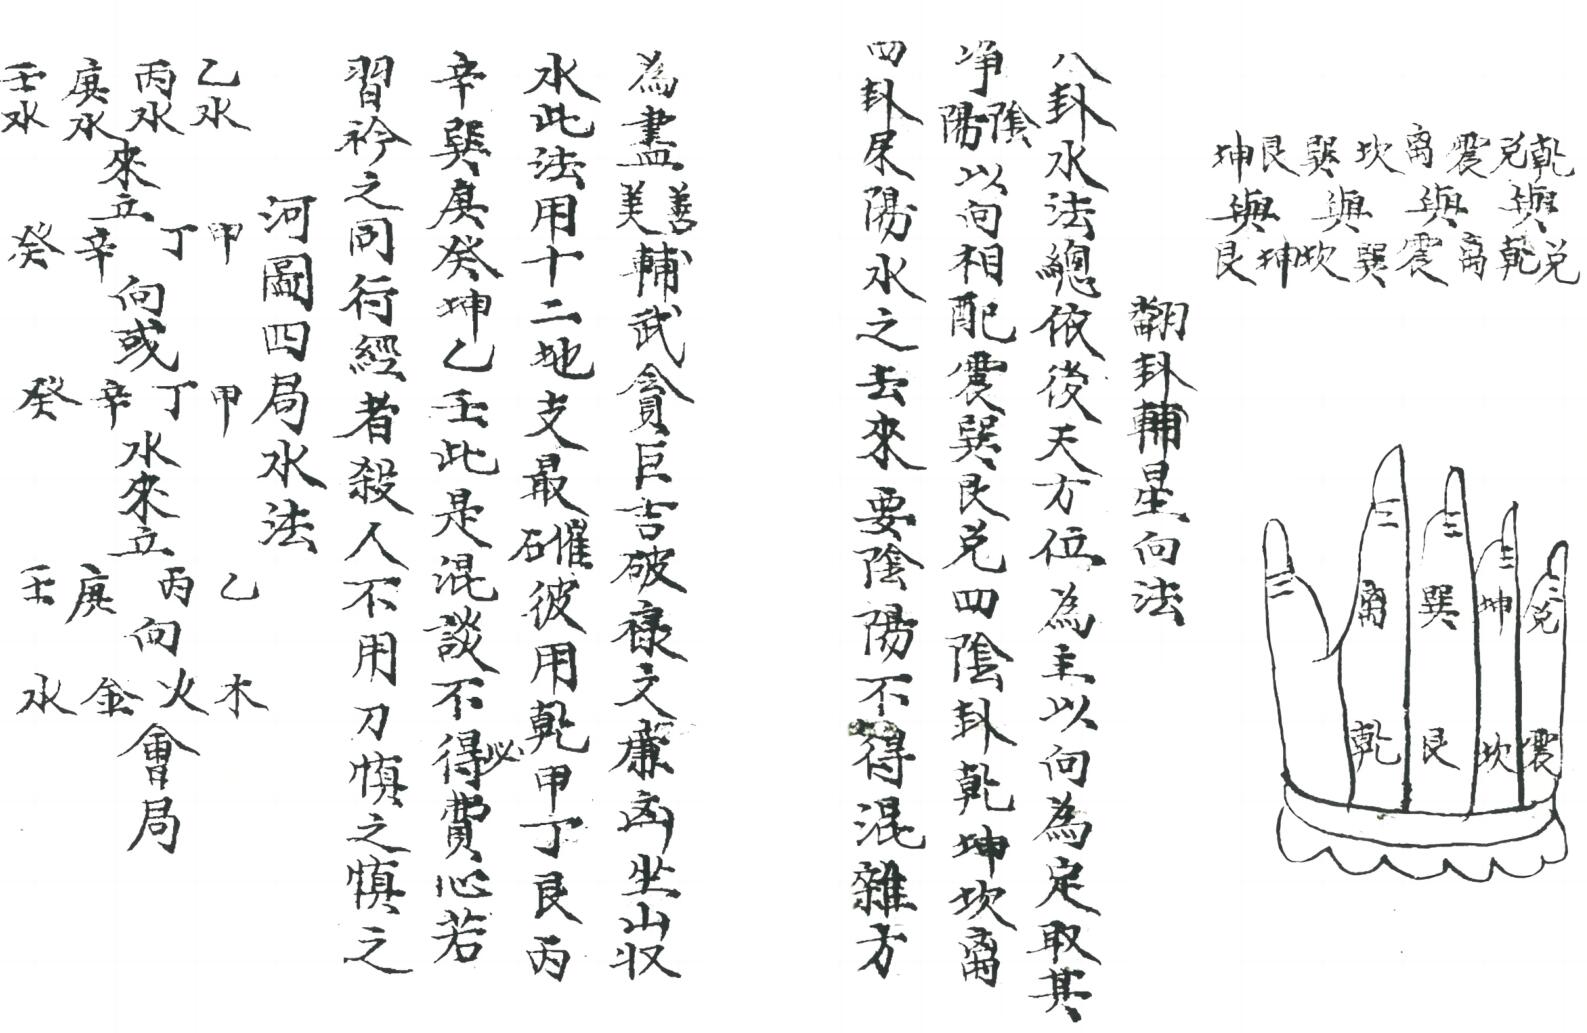 乾兌震离坎巽艮坤
與與與與
兌乾离震巽坎坤艮
离巽坤兌
乾艮坎震
翻卦輔星向法
八卦水法總依後天方位為主以向為定取其
净陰陽以向相配震巽艮兌四陰卦乾坤坎离
四卦屎陽水之去來要陰陽不得混雜方
為盡善美輔武貪巨吉破祿文廉凶坐山収
水此法用十二地支最磪彼用乾甲丁艮丙
辛巽庚癸坤乙壬此是混談不得必費心若
習衿之同行經者殺人不用刀慎之慎之
河圖四局水法
乙水丙水庚水壬水
來立
甲丁辛癸
向或
甲丁辛癸
水來立
乙丙庚壬
向
木火金水
會局